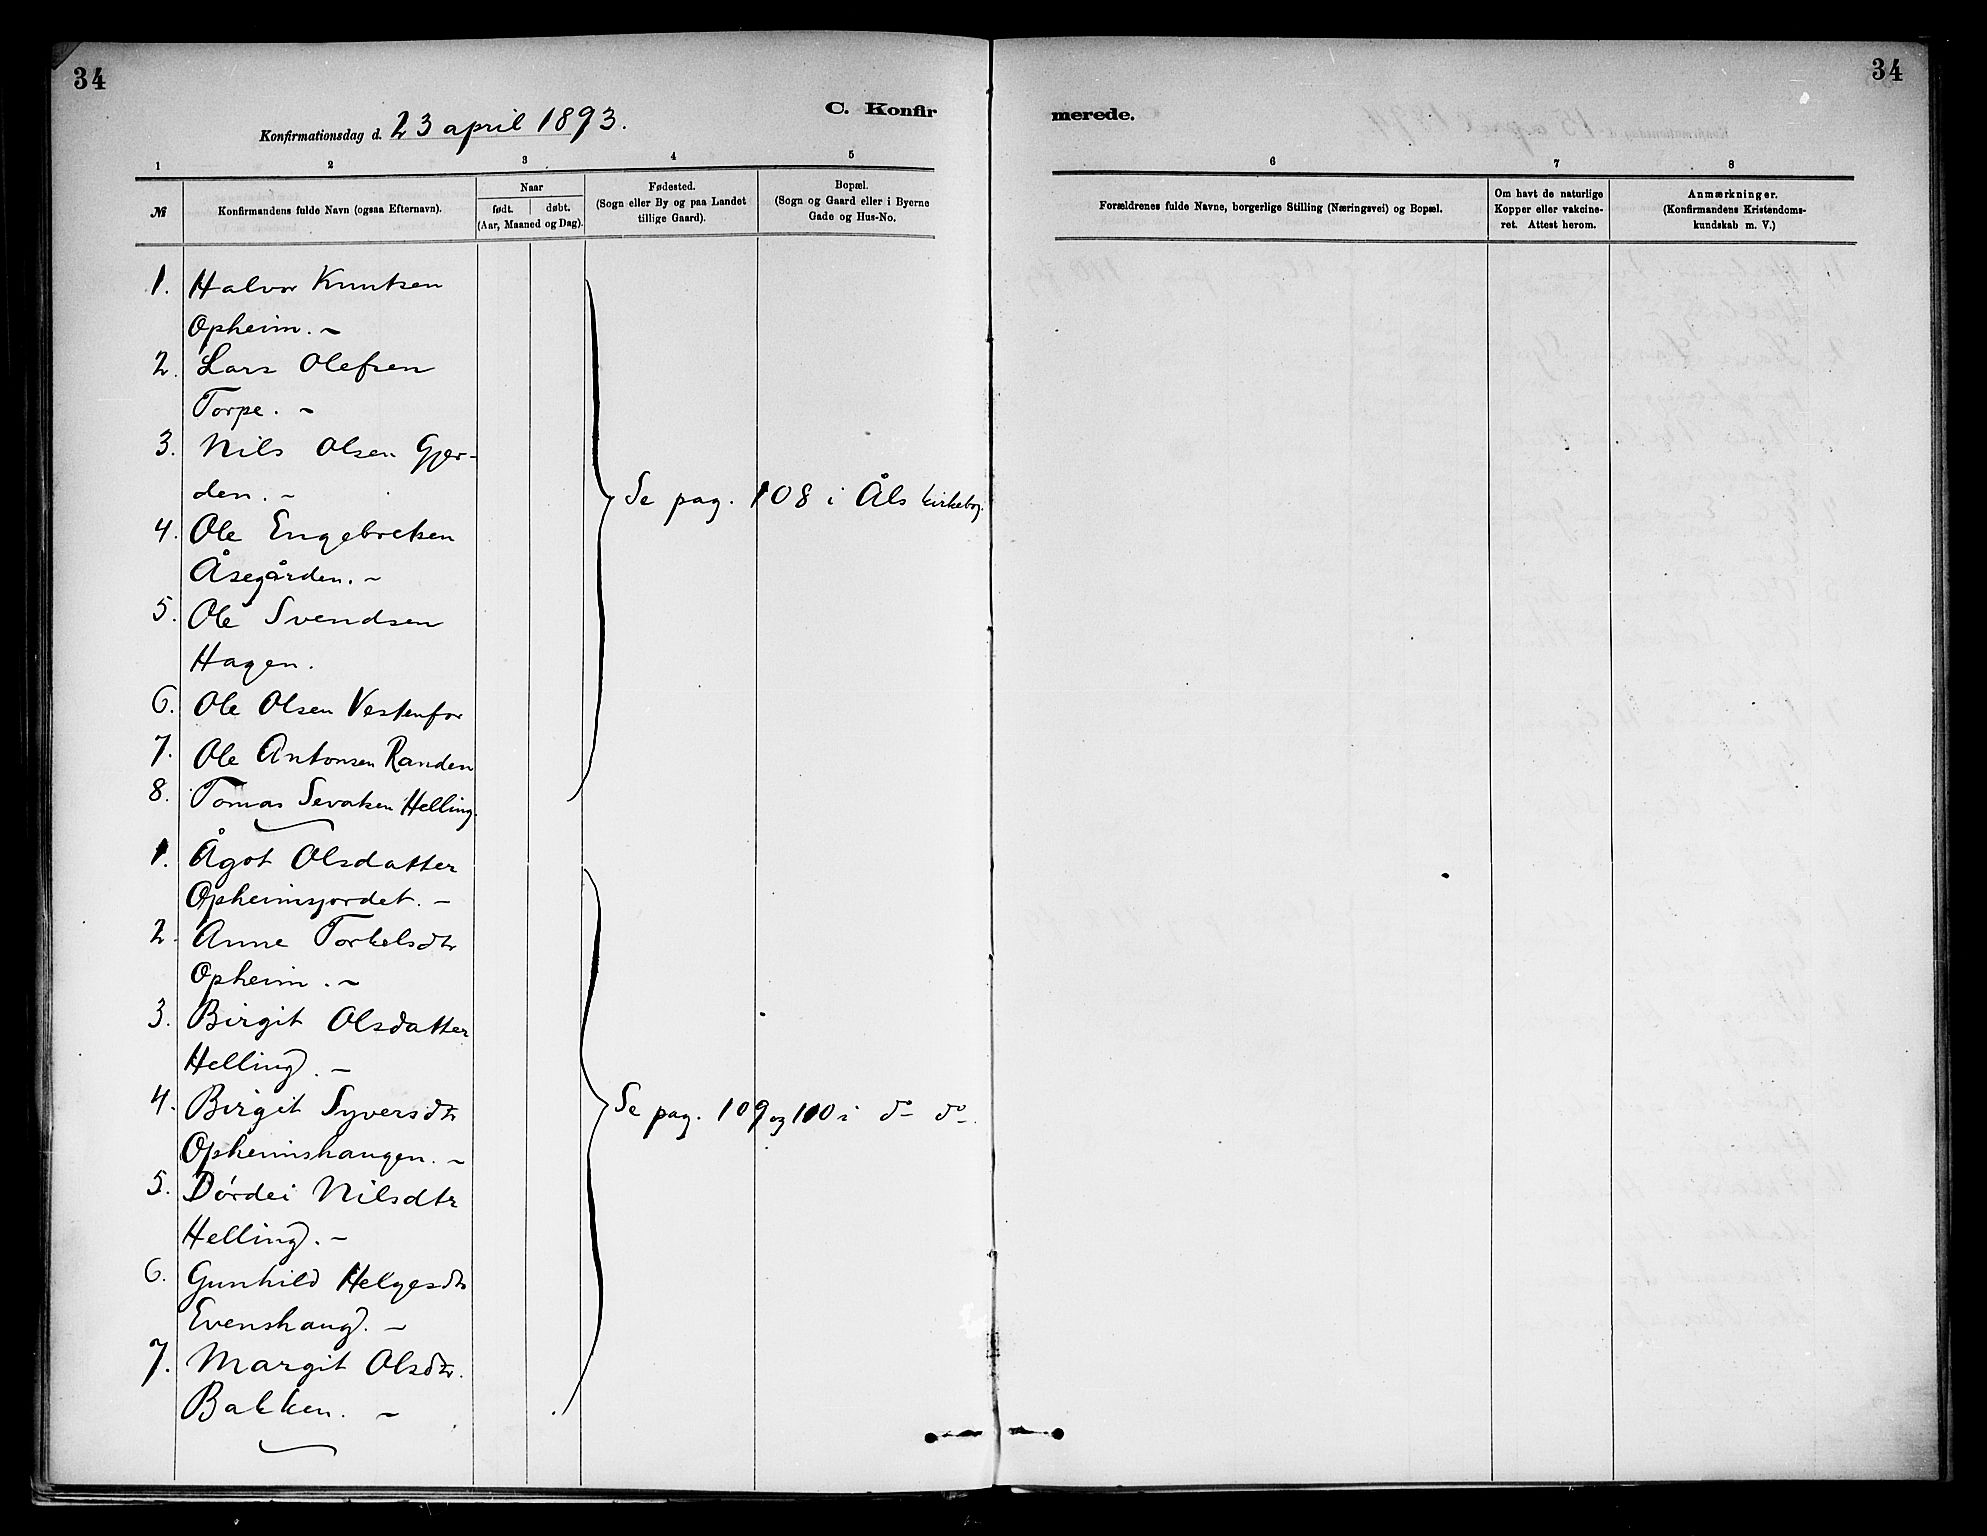 34
34
C. Konfir
merede.
Konfirmationsdag d. 23 april 1893.
1
2
3
4
5
6
7
8
№
Konfirmandens fulde Navn (ogsaa Efternavn).
Naar
født. døbt.
(Aar, Maaned og Dag).
Fødested.
(Sogn eller By og paa Landet
tillige Gaard).
Bopæl.
(Sogn og Gaard eller i Byerne
Gade og Hus-No.
Forældrenes fulde Navne, borgerlige Stilling (Næringsvei) og Bopæl.
Om havt de naturlige
Kopper eller vakcine-
ret. Attest herom.
Anmærkninger.
(Konfirmandens Kristendoms-
kundskab m. V.)
1. Halvor Knutsen
Opheim. ~
2. Lars Olefsen
Torpe. ~
3. Nils Olsen Gjer-
den. ~
Se pag. 108 i Åls kirkebog.
4. Ole Engebretsen
Åsegården. ~
5. Ole Svendsen
Hagen.
6. Ole Olsen Vestenfor
7. Ole Antonsen Randen
8. Tomas Sevatsen Helling.
1. Ågot Olsdatter
Opheimsjordet. ~
2. Anne Torkelsdtr
Opheim. ~
3. Birgit Olsdatter
Helling. ~
4. Birgit Syversdtr
Opheimshaugen. ~
Se pag. 109 og 110 i do do.
5. Dórdei Nilsdtr
Helling. ~
6. Gunhild Helgesdtr
Evenshaug. ~
7. Margit Olsdtr.
Bakken. ~